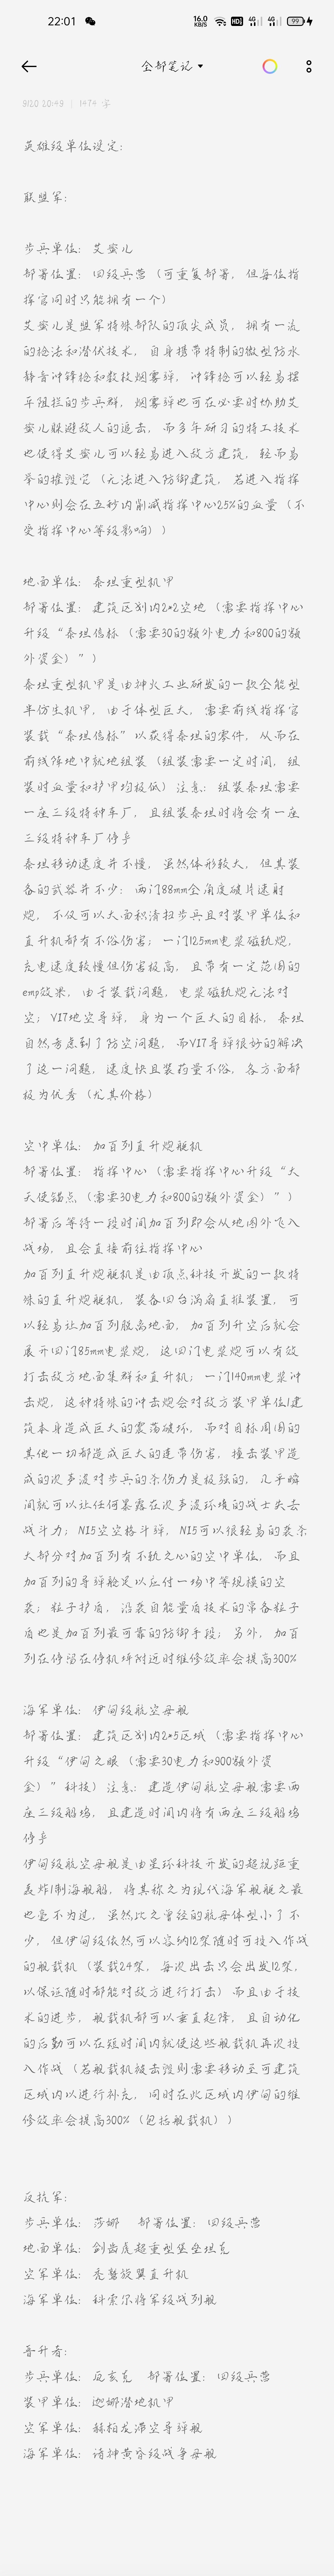 22:01
16.0
KB/S
HD
4G
4G
99
全部笔记
9/20 20:49 | 1474 字
英雄级单位设定:
联盟军:
步兵单位: 艾蜜儿
部署位置: 四级兵营 (可重复部署, 但每位指
挥官同时只能拥有一个)
艾蜜儿是盟军特殊部队的顶尖成员, 拥有一流
的枪法和潜伏技术, 自身携带特制的微型防水
静音冲锋枪和数枚烟雾弹, 冲锋枪可以轻易摆
平阻拦的步兵群, 烟雾弹也可在必要时协助艾
蜜儿躲避敌人的追击, 而多年研习的特工技术
也使得艾蜜儿可以轻易进入敌方建筑, 轻而易
举的摧毁它 (无法进入防御建筑, 若进入指挥
中心则会在五秒内削减指挥中心25%的血量 (不
受指挥中心等级影响) )
地面单位: 泰坦重型机甲
部署位置: 建筑区划内2*2空地 (需要指挥中心
升级“泰坦信标 (需要30的额外电力和800的额
外资金) ” )
泰坦重型机甲是由神火工业研发的一款全能型
半仿生机甲, 由于体型巨大, 需要前线指挥官
装载“泰坦信标”以获得泰坦的零件, 从而在
前线阵地中就地组装 (组装需要一定时间, 组
装时血量和护甲均极低) 注意: 组装泰坦需要
一座三级特种车厂, 且组装泰坦时将会有一座
三级特种车厂停乎
泰坦移动速度并不慢, 虽然体形较大, 但其装
备的武器并不少: 两门88mm全角度破片速射
炮, 不仅可以大面积清扫步兵且对装甲单位和
直升机都有不俗伤害; 一门125mm电浆磁轨炮,
充电速度较慢但伤害极高, 且带有一定范围的
emp效果, 由于装载问题, 电浆磁轨炮无法对
空; V17地空导弹, 身为一个巨大的目标, 泰坦
自然考虑到了防空问题, 而V17导弹很好的解决
了这一问题, 速度快且装药量不俗, 各方面都
极为优秀 (尤其价格)
空中单位: 加百列直升炮艇机
部署位置: 指挥中心 (需要指挥中心升级“大
天使锚点 (需要30电力和800的额外资金) ” )
部署后等待一段时间加百列即会从地图外飞入
战场, 且会直接前往指挥中心
加百列直升炮艇机是由顶点科技开发的一款特
殊的直升炮艇机, 装备四台涡扇直推装置, 可
以轻易让加百列脱离地面, 加百列升空后就会
展开四门85mm电浆炮, 这四门电浆炮可以有效
打击敌方地面集群和直升机; 一门140mm电浆冲
击炮, 这种特殊的冲击炮会对敌方装甲单位/建
筑本身造成巨大的震荡破坏, 而对目标周围的
其他一切都造成巨大的连带伤害, 撞击装甲造
成的次声波对步兵的杀伤力是极强的, 几乎瞬
间就可以让任何暴露在次声波环境的战士失去
战斗力; N15空空格斗弹, N15可以很轻易的袭杀
大部分对加百列有不轨之心的空中单位, 而且
加百列的导弹舱足以应付一场中等规模的空
袭; 粒子护盾, 沿袭自能量盾技术的常备粒子
盾也是加百列最可靠的防御手段; 另外, 加百
列在停留在停机坪附近时维修效率会提高300%
海军单位: 伊甸级航空母舰
部署位置: 建筑区划内2*5区域 (需要指挥中心
升级“伊甸之眼 (需要30电力和900额外资
金) ”科技) 注意: 建造伊甸航空母舰需要两
座三级船坞, 且建造时间内将有两座三级船坞
停乎
伊甸级航空母舰是由星环科技开发的超视距重
轰炸/制海舰船, 将其称之为现代海军舰艇之最
也毫不为过, 虽然比之曾经的航母体型小了不
少, 但伊甸级依然可以容纳12架随时可投入作战
的舰载机 (装载24架, 每次出击只会出发12架,
以保证随时都能对敌方进行打击) 而且由于技
术的进步, 舰载机都可以垂直起降, 且自动化
的后勤可以在短时间内就使这些舰载机再次投
入作战 (若舰载机被击毁则需要移动至可建筑
区域内以进行补充, 同时在此区域内伊甸的维
修效率会提高300% (包括舰载机) )
反抗军:
步兵单位: 莎娜 部署位置: 四级兵营
地面单位: 剑齿虎超重型堡垒坦克
空军单位: 秃鹫旋翼直升机
海军单位: 科索尔将军级战列舰
晋升者:
步兵单位: 厄亥克 部署位置: 四级兵营
装甲单位: 迦娜潜地机甲
空军单位: 赫柏龙滞空导弹舰
海军单位: 诸神黄昏级战争母舰